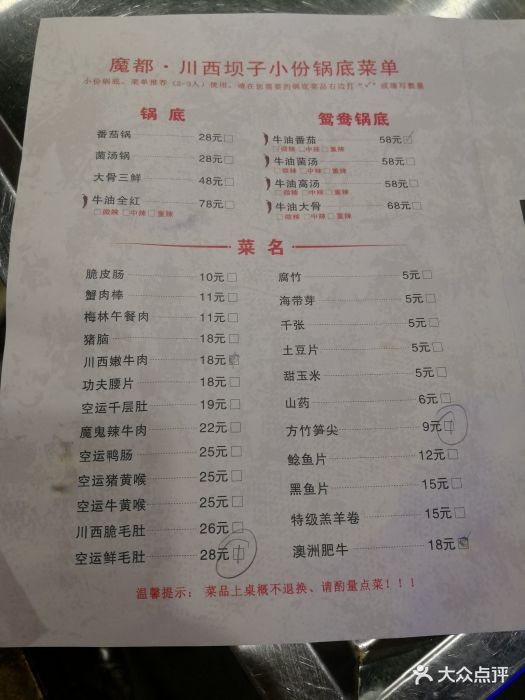 魔都·川西坝子小份锅底菜单
小份锅底、菜单推荐（2-3人）使用，请在您需要的锅底菜品右边打“√”或填写数量
锅 底
番茄锅 28元□
菌汤锅 28元□
大骨三鲜 48元□
牛油全红 78元□
□微辣 □中辣 □重辣
鸳鸯锅底
牛油番茄 58元□
□微辣 □中辣 □重辣
牛油菌汤 58元□
□微辣 □中辣 □重辣
牛油高汤 58元□
□微辣 □中辣 □重辣
牛油大骨 68元□
□微辣 □中辣 □重辣
菜 名
脆皮肠 10元□
蟹肉棒 11元□
梅林午餐肉 11元□
猪脑 18元□
川西嫩牛肉 18元□
功夫腰片 18元□
空运千层肚 19元□
魔鬼辣牛肉 22元□
空运鸭肠 25元□
空运猪黄喉 25元□
空运牛黄喉 25元□
川西脆毛肚 26元□
空运鲜毛肚 28元□
腐竹 5元□
海带芽 5元□
千张 5元□
土豆片 5元□
甜玉米 5元□
山药 6元□
方竹笋尖 9元□
鲶鱼片 12元□
黑鱼片 15元□
特级羔羊卷 15元□
澳洲肥牛 18元□
温馨提示：菜品上桌概不退换、请酌量点菜！！！
大众点评